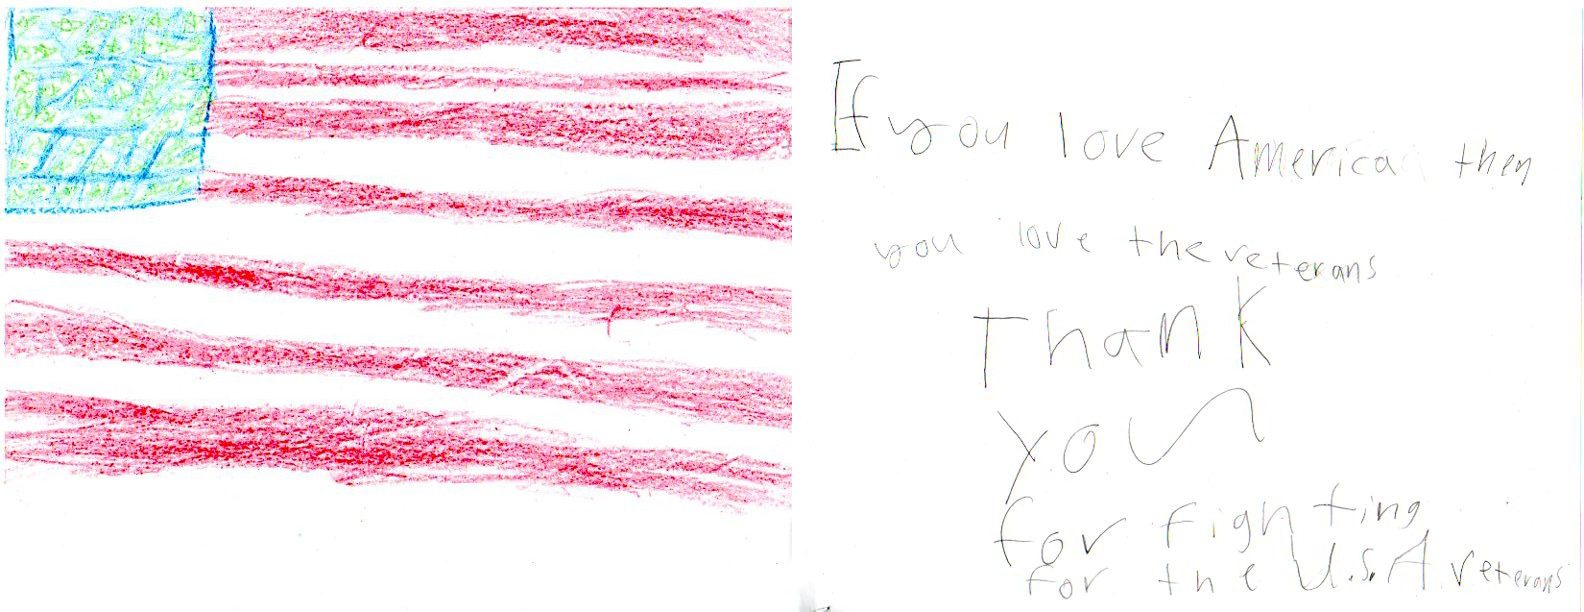 If you love America then
you love the veterans
Thank
you
for fighting
for the U.S.A. veterans